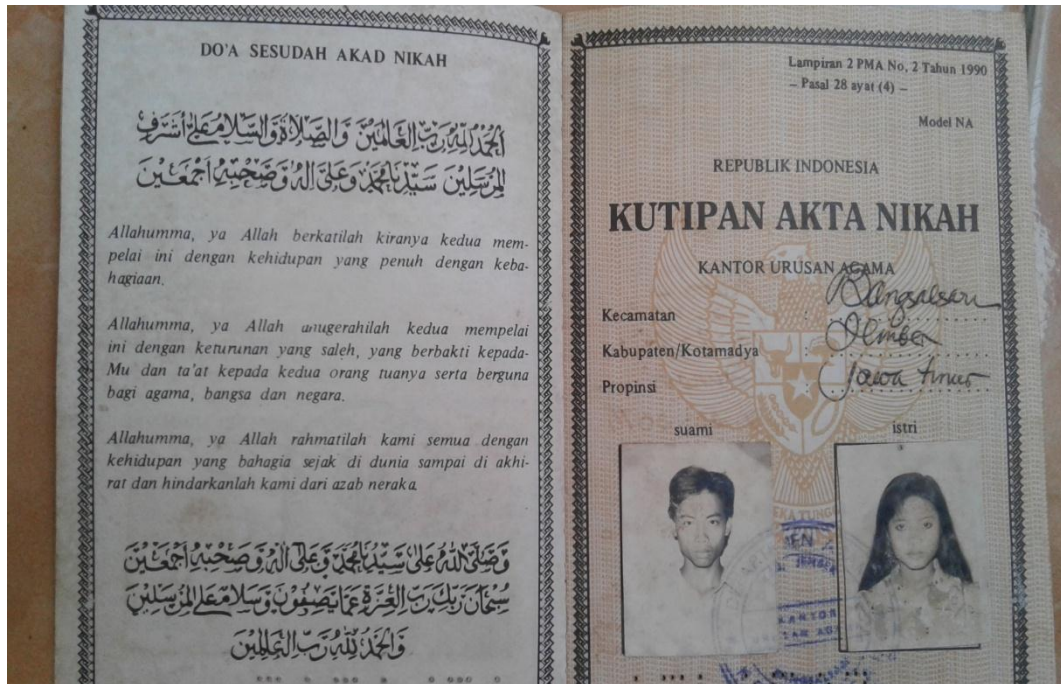 DO'A SESUDAH AKAD NIKAH
اَلْحَمْدُ لِلّٰهِ رَبِّ الْعَالَمِيْنَ وَالصَّلَاةُ وَالسَّلَامُ عَلَى اَشْرَفِ
الْمُرْسَلِيْنَ سَيِّدِنَا مُحَمَّدٍ وَعَلَى اٰلِهِ وَصَحْبِهِ اَجْمَعِيْنَ
Allahumma, ya Allah berkatilah kiranya kedua mem-
pelai ini dengan kehidupan yang penuh dengan keba-
hagiaan.
Allahumma, ya Allah anugerahilah kedua mempelai
ini dengan keturunan yang saleh, yang berbakti kepada-
Mu dan ta'at kepada kedua orang tuanya serta berguna
bagi agama, bangsa dan negara.
Allahumma, ya Allah rahmatilah kami semua dengan
kehidupan yang bahagia sejak di dunia sampai di akhi-
rat dan hindarkanlah kami dari azab neraka.
وَصَلَّى اللّٰهُ عَلَى سَيِّدِنَا مُحَمَّدٍ وَعَلَى اٰلِهِ وَصَحْبِهِ اَجْمَعِيْنَ
سُبْحَانَ رَبِّكَ رَبِّ الْعِزَّةِ عَمَّا يَصِفُوْنَ وَسَلَامٌ عَلَى الْمُرْسَلِيْنَ
وَالْحَمْدُ لِلّٰهِ رَبِّ الْعَالَمِيْنَ
Lampiran 2 PMA No, 2 Tahun 1990
– Pasal 28 ayat (4) –
Model NA
REPUBLIK INDONESIA
KUTIPAN AKTA NIKAH
KANTOR URUSAN AGAMA
Kecamatan : Bangsalsari
Kabupaten/Kotamadya : Jember
Propinsi : Jawa timur
suami istri